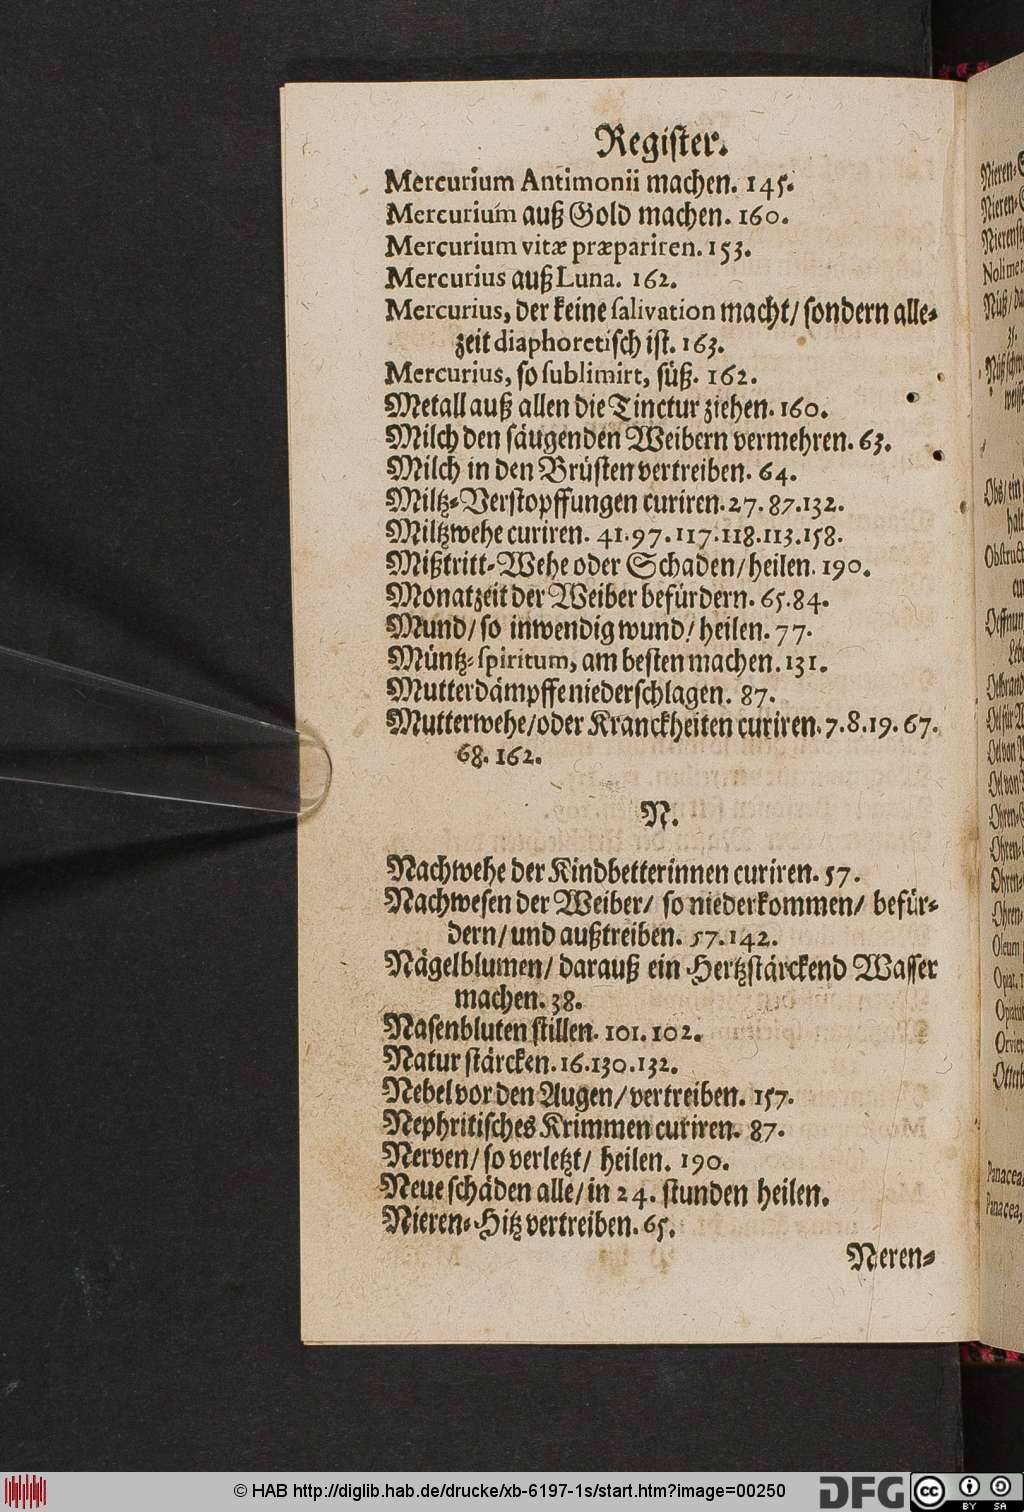 Register.
Mercurium Antimonii machen. 145.
Mercurium auß Gold machen. 160.
Mercurium vitæ præpariren. 153.
Mercurius auß Luna. 162.
Mercurius, der keine salivation macht/ sondern alle-
zeit diaphoretisch ist. 163.
Mercurius, so sublimirt, süß. 162.
Metall auß allen die Tinctur ziehen. 160.
Milch den säugenden Weibern vermehren. 63.
Milch in den Brüsten vertreiben. 64.
Miltz-Verstopffungen curiren. 27. 87. 132.
Miltzwehe curiren. 41. 97. 117. 118. 113. 158.
Mißtritt-Wehe oder Schaden/ heilen. 190.
Monatzeit der Weiber befürdern. 65. 84.
Mund/ so inwendig wund/ heilen. 77.
Müntz-spiritum, am besten machen. 131.
Mutterdämpffe niederschlagen. 87.
Mutterwehe/ oder Kranckheiten curiren. 7. 8. 19. 67.
68. 162.
N.
Nachwehe der Kindbetterinnen curiren. 57.
Nachwesen der Weiber/ so niederkommen/ befür-
dern/ und außtreiben. 57. 142.
Nägelblumen/ darauß ein Hertzstärckend Wasser
machen. 38.
Nasenbluten stillen. 101. 102.
Natur stärcken. 16. 130. 132.
Nebel vor den Augen/ vertreiben. 157.
Nephritisches Krimmen curiren. 87.
Nerven/ so verletzt/ heilen. 190.
Neue schäden alle/ in 24. stunden heilen.
Nieren-Hitz vertreiben. 65.
Neren-
© HAB http://diglib.hab.de/drucke/xb-6197-1s/start.htm?image=00250
DFG
CC BY SA